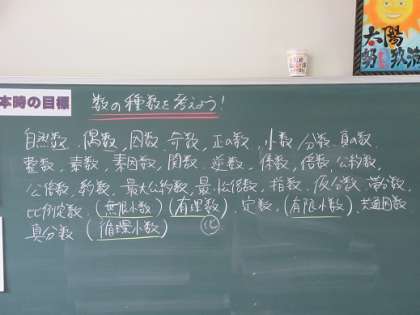 太陽
本時の目標
数の種数を考えよう!
自然数、偶数、因数、奇数、正の数、小数、分数、負の数、
整数、素数、素因数、関数、逆数、係数、倍数、公約数、
公倍数、約数、最大公約数、最小公倍数、指数、仮分数、帯分数、
比例定数、(無限小数)(有理数)、定数、(有限小数)、共通因数
真分数(循環小数)